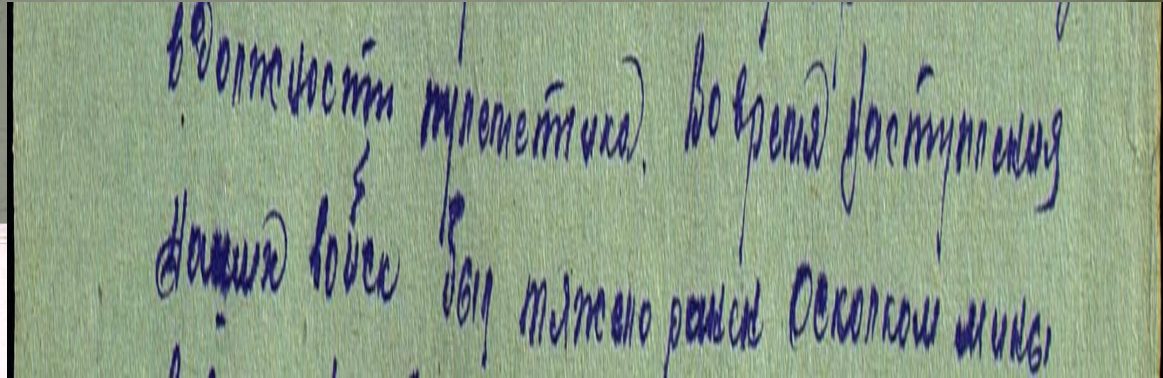 в должности пулеметчика. Во время наступления
наших войск был тяжело ранен осколком мины